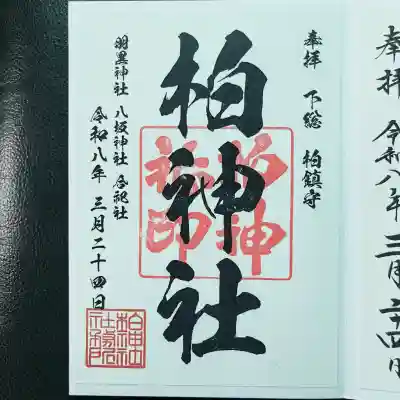 奉拝 下総 柏鎮守
柏神社
羽黒神社 八坂神社 合祀社
令和八年 三月二十四日
柏神社印
奉拝 令和八年 三月二十四日